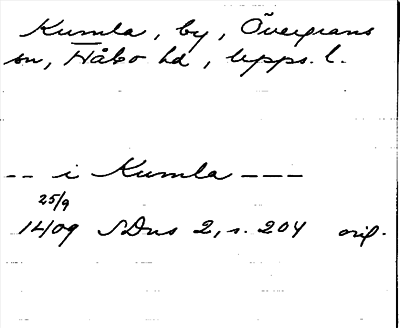 Kumla, by, Övergrans
sn, Håbo hd, Upps. l.
-- i Kumla ---
25/9
1409 SDns 2, s. 204 orig.